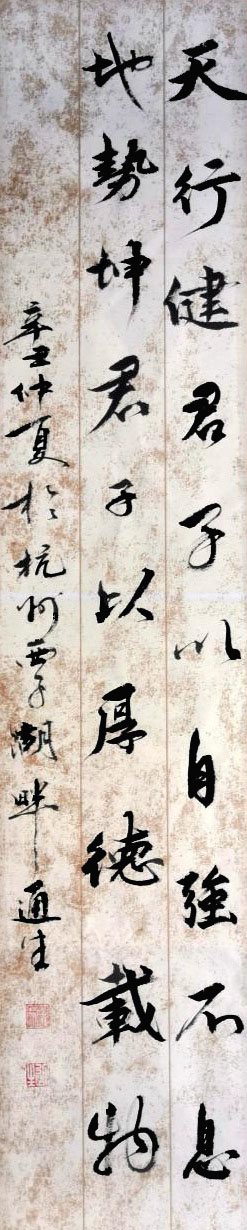 天行健君子以自強不息
地勢坤君子以厚德載物
辛丑仲夏於杭州西子湖畔通生